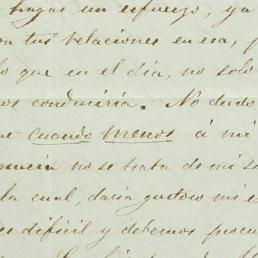 hagas un esfuerzo, ya
tus relaciones en esa, p
lo que en el dia, no solo
nos conduciria. No dudo
ue cuando menos á mi
no se trata de mi so
la cual, daria gustoso mi
es dificil y debemos procu